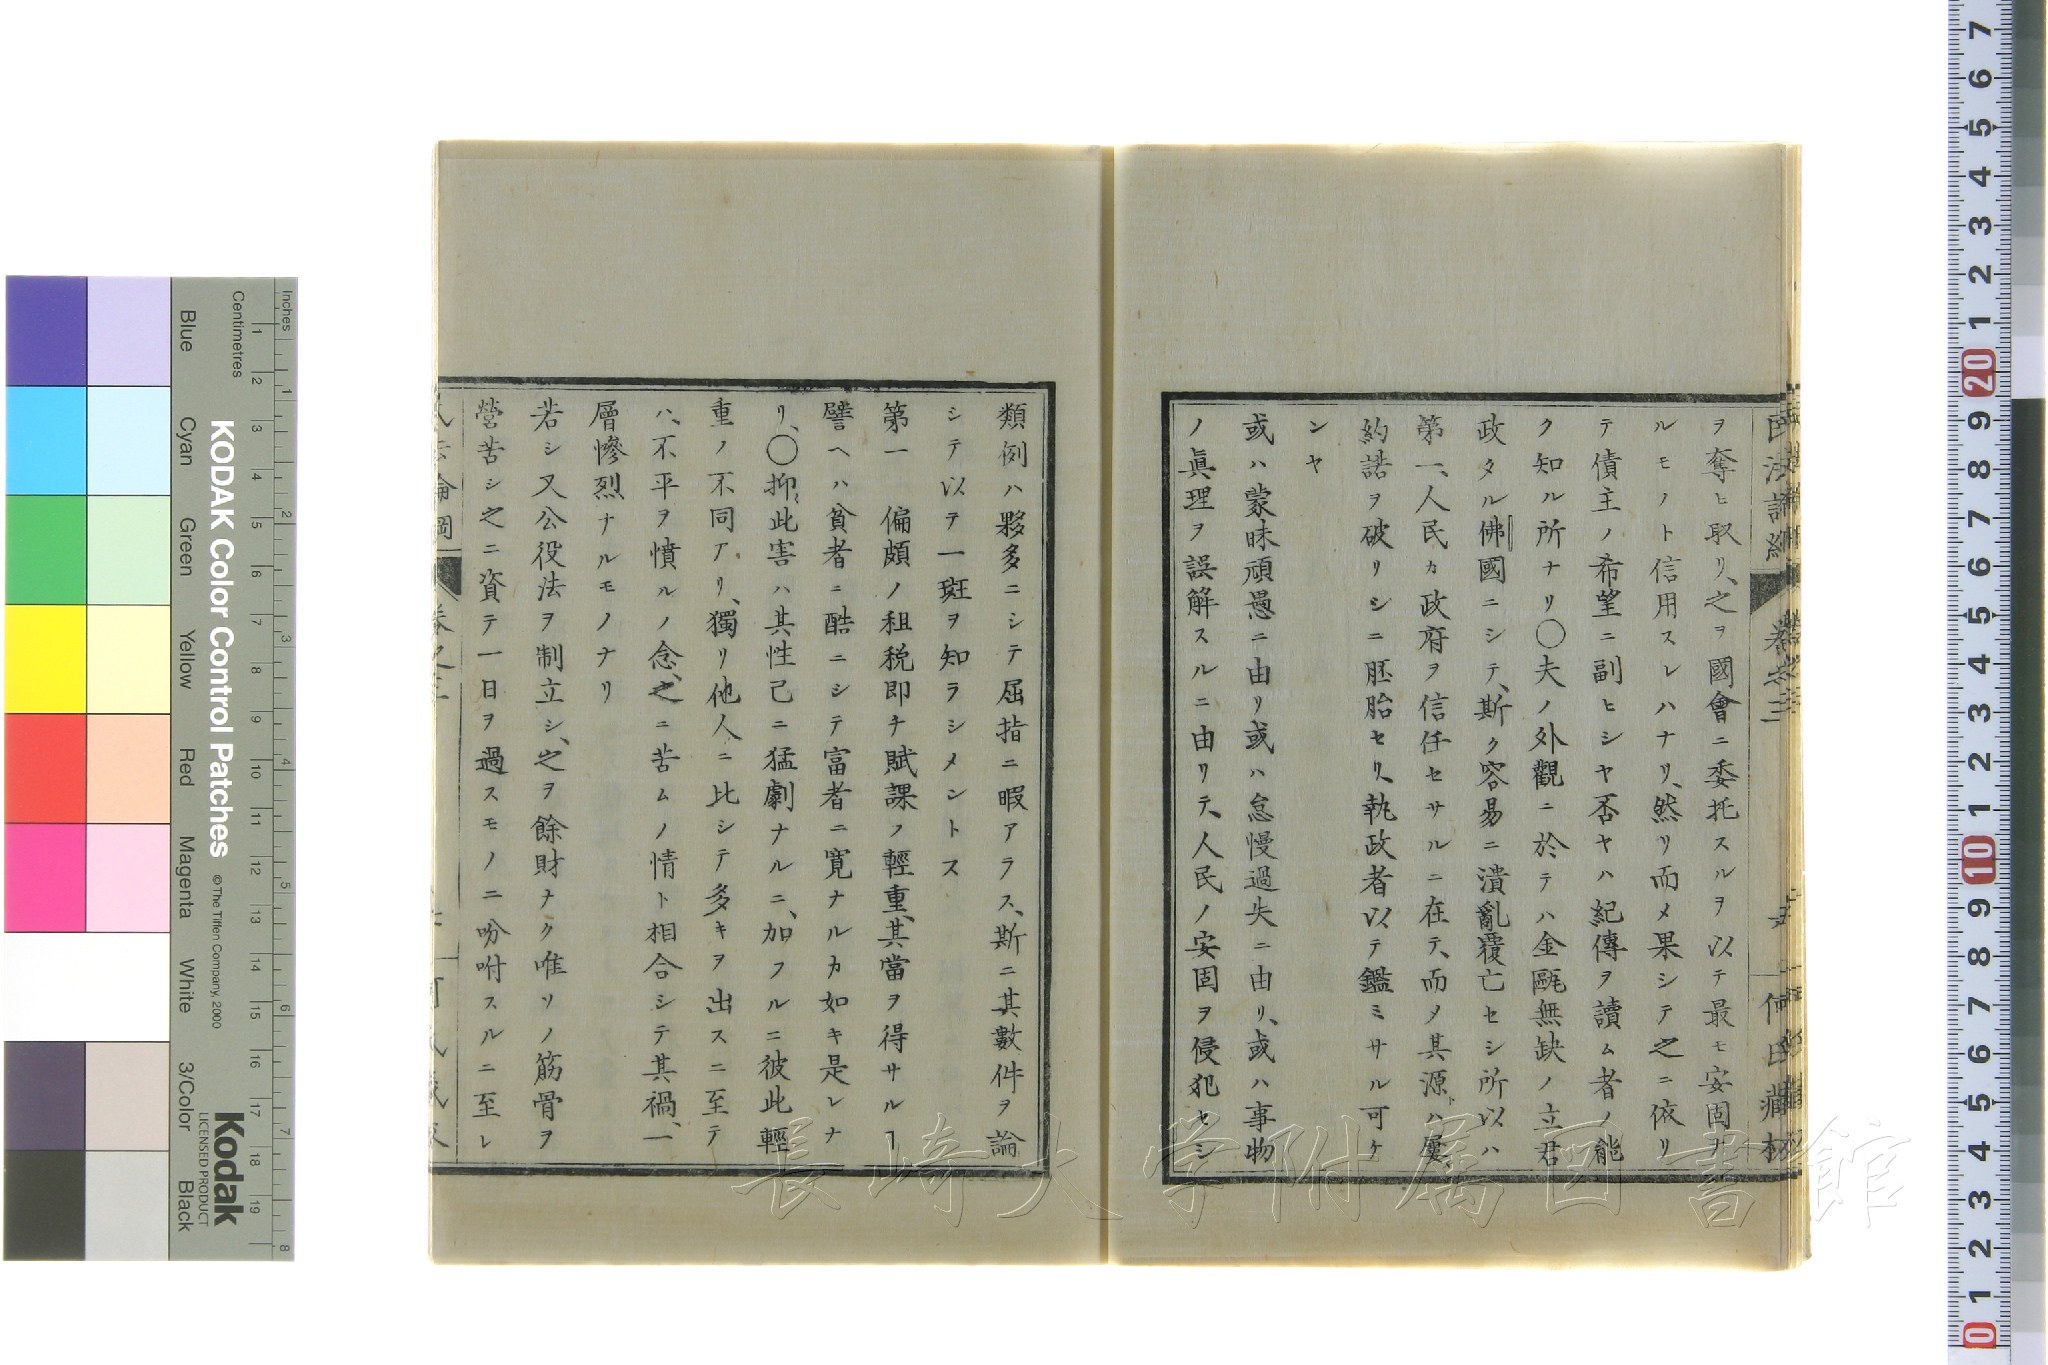 ヲ奪ヒ取リ、之ヲ國會ニ委托スルヲ以テ最モ安固ナ
ルモノト信用スレハナリ、然リ而メ果シテ之ニ依リ
テ債主ノ希望ニ副ヒシヤ否ヤハ紀傳ヲ讀ム者ノ能
ク知ル所ナリ〇夫ノ外觀ニ於テハ金甌無缺ノ立君
政タル佛國ニシテ、斯ク容易ニ潰亂覆亡セシ所以ハ
第一、人民カ政府ヲ信任セサルニ在テ、而メ其源ハ屢
約諾ヲ破リシニ胚胎セリ、執政者以テ鑑ミサル可ケ
ンヤ
或ハ蒙昧頑愚ニ由リ或ハ怠慢過失ニ由リ、或ハ事物
ノ眞理ヲ誤解スルニ由リテ、人民ノ安固ヲ侵犯セシ
類例ハ夥多ニシテ屈指ニ暇アラス、斯ニ其數件ヲ論
シテ以テ一斑ヲ知ラシメントス
第一 偏頗ノ租税即チ賦課ノ輕重、其當ヲ得サルヿ
譬ヘハ貧者ニ酷ニシテ富者ニ寛ナルカ如キ是レナ
リ、〇抑此害ハ其性己ニ猛劇ナルニ、加フルニ彼此輕
重ノ不同アリ、獨リ他人ニ比シテ多キヲ出スニ至テ
ハ、不平ヲ憤ルノ念、之ニ苦ムノ情ト相合シテ其禍、一
層慘烈ナルモノナリ
若シ又公役法ヲ制立シ、之ヲ餘財ナク唯ソノ筋骨ヲ
營苦シ之ニ資テ一日ヲ過スモノニ吩咐スルニ至レ
KODAK Color Control Patches
© The Tiffen Company, 2000
Kodak
LICENSED PRODUCT
Inches
Centimetres
Blue
Cyan
Green
Yellow
Red
Magenta
White
3/Color
Black
長崎大学附属図書館